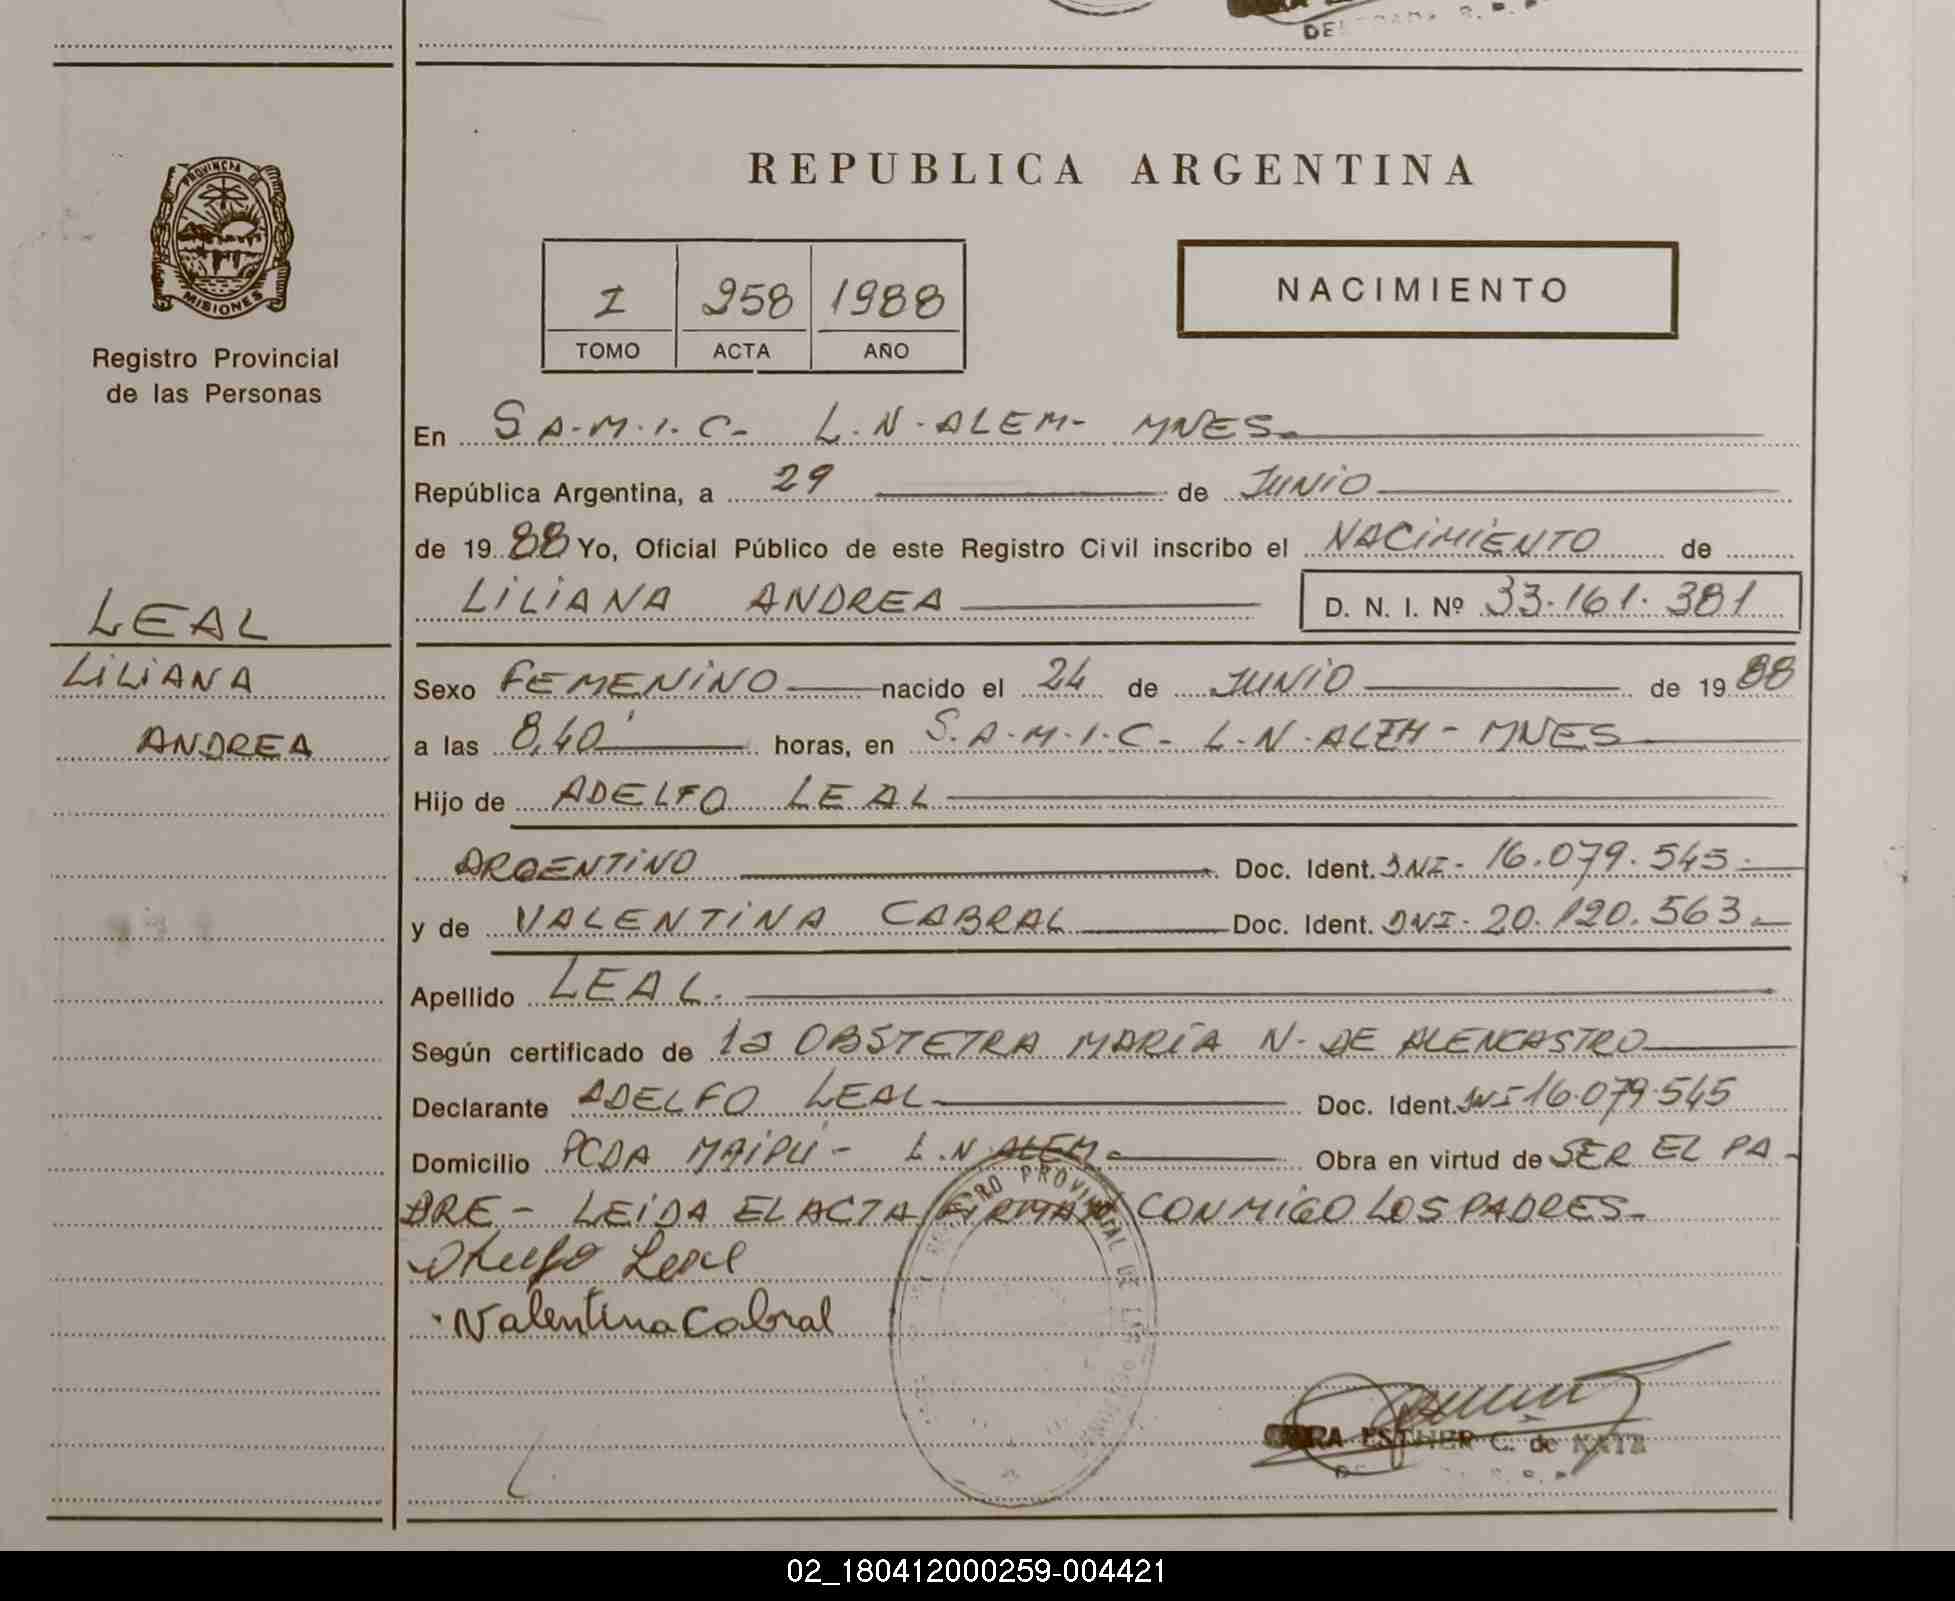 PROVINCIA DE
MISIONES
Registro Provincial
de las Personas
LEAL
LILIANA
ANDREA
REPUBLICA ARGENTINA
I 258 1988
TOMO ACTA AÑO
NACIMIENTO
En S.A.M.I.C- L.N.ALEM- MNES.
República Argentina, a 29 de JUNIO
de 1988 Yo, Oficial Público de este Registro Civil inscribo el NACIMIENTO de
LILIANA ANDREA D. N. I. Nº 33.161.381
Sexo FEMENINO nacido el 24 de JUNIO de 1988
a las 8,40' horas, en S.A.M.I.C- L.N.ALEM- MNES
Hijo de ADELFO LEAL
ARGENTINO Doc. Ident. DNI- 16.079.545.
y de VALENTINA CABRAL Doc. Ident. DNI- 20.120.563.
Apellido LEAL.
Según certificado de la OBSTETRA MARÍA N. DE ALENCASTRO
Declarante ADELFO LEAL Doc. Ident. DNI-16.079.545
Domicilio PCDA MAIPÚ- L.N.ALEM. Obra en virtud de SER EL PA-
DRE- LEIDA EL ACTA FIRMAN CONMIGO LOS PADRES-
Leal
Valentina Cabral
REGISTRO PROVINCIAL DE LAS
ESTHER C. de
02_180412000259-004421